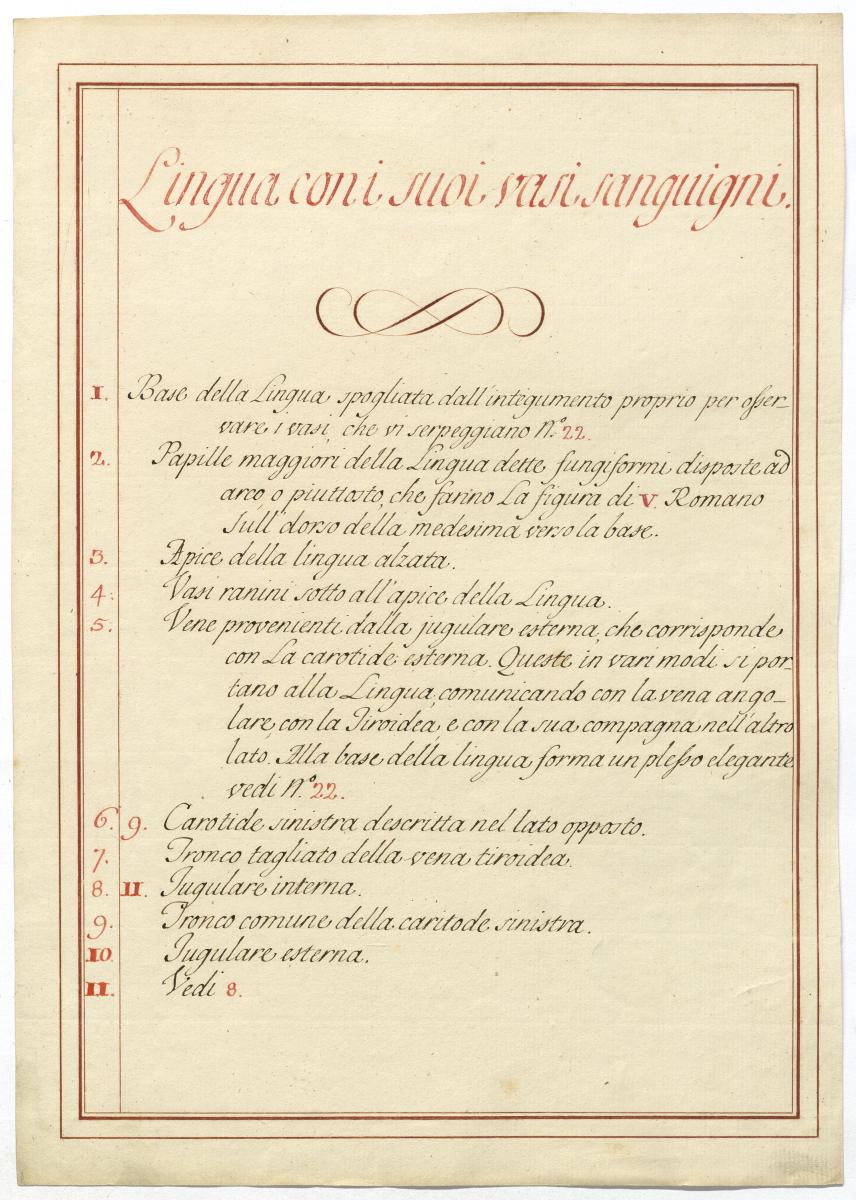 Lingua con i suoi vasi sanguigni.
1. Base della Lingua spogliata dall'integumento proprio per osser-
vare i vasi, che vi serpeggiano N.º 22.
2. Papille maggiori della Lingua dette fungiformi disposte ad
arco, o piuttosto, che fanno La figura di V. Romano
sull'dorso della medesima verso la base.
3. Apice della lingua alzata.
4. Vasi ranini sotto all'apice della Lingua.
5. Vene provenienti dalla jugulare esterna, che corrisponde
con La carotide esterna. Queste in vari modi si por-
tano alla Lingua, comunicando con la vena ango-
lare, con la Tiroidea, e con la sua compagna nell'altro
lato. Alla base della lingua forma un plesso elegante
vedi N.º 22.
6. 9. Carotide sinistra descritta nel lato opposto.
7. Tronco tagliato della vena tiroidea.
8. 11. Jugulare interna.
9. Tronco comune della caritode sinistra.
10. Jugulare esterna.
11. Vedi 8.